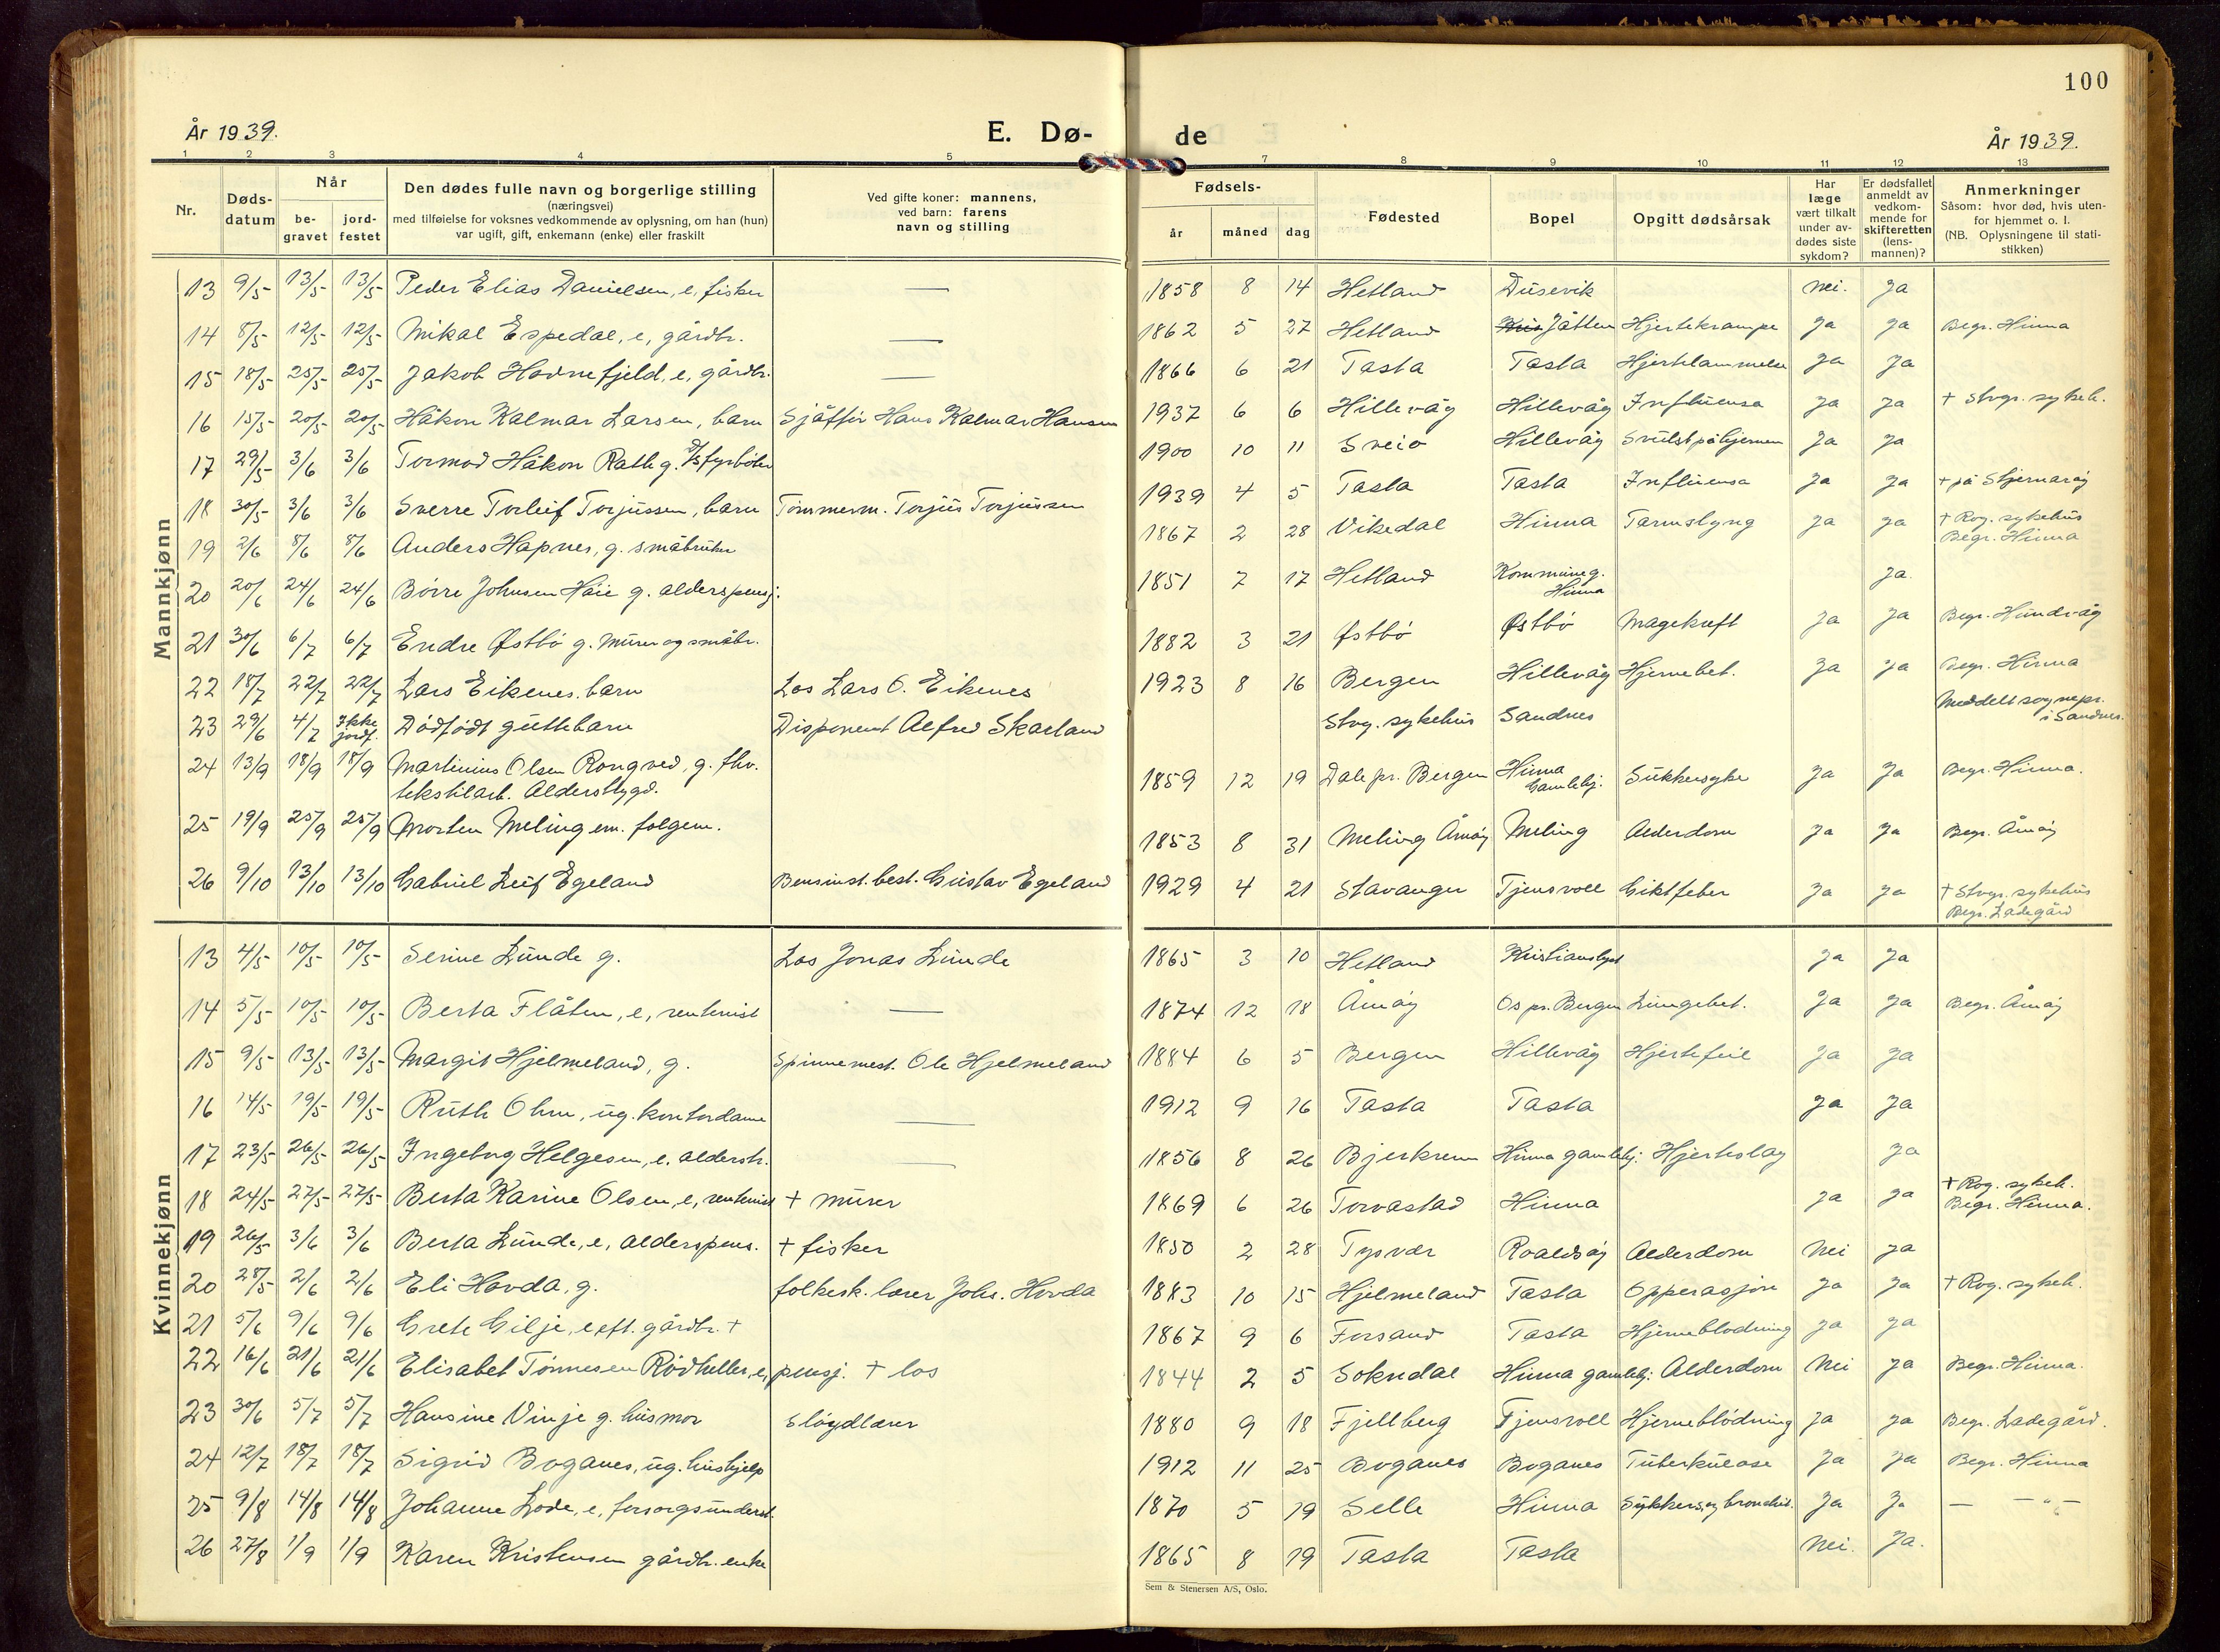 100
År 1939.
E. Dø-
de
År 1939.
1 2 3 4 5 7 8 9 10 11 12 13
Nr.
Døds-
datum
Når
be-
gravet
jord-
festet
Den dødes fulle navn og borgerlige stilling
(næringsvei)
med tilføielse for voksnes vedkommende av oplysning, om han (hun)
var ugift, gift, enkemann (enke) eller fraskilt
Ved gifte koner: mannens,
ved barn: farens
navn og stilling
Fødsels-
år
måned
dag
Fødested
Bopel
Opgitt dødsårsak
Har
læge
vært tilkalt
under av-
dødes siste
sykdom?
Er dødsfallet
anmeldt av
vedkom-
mende for
skifteretten
(lens-
mannen)?
Anmerkninger
Såsom: hvor død, hvis uten-
for hjemmet o. l.
(NB. Oplysningene til stati-
stikken)
Mannkjønn
13 9/5 13/5 13/5 Peder Elias Danielsen, e, fisker — 1858 8 14 Hetland Dusevik nei. ja
14 8/5 12/5 12/5 Mikal Espedal, e, gårdbr. — 1862 5 27 Hetland Jåtten Hjertekrampe ja ja Begr. Hinna
15 18/5 25/5 25/5 Jakob Hodnefjeld, e, gårdbr. — 1866 6 21 Tasta Tasta Hjertelammelse ja ja
16 15/5 20/5 20/5 Håkon Kalmar Larsen, barn Sjåffør Hans Kalmar Hansen 1937 6 6 Hillevåg Hillevåg Influensa ja ja + Stvgr. sykeh.
17 29/5 3/6 3/6 Tormod Håkon Rath g. D/S fyrbøter 1900 10 11 Sveio Hillevåg Svulst på hjernen ja ja
18 30/5 3/6 3/6 Sverre Torleif Torjussen, barn Tømmerm. Torjus Torjussen 1939 4 5 Tasta Tasta Influensa ja ja + på Stjernarøy
19 2/6 8/6 8/6 Anders Hapnes, g. småbruker 1867 2 28 Vikedal Hinna Tarmslyng ja ja + Rog. sykehus
Begr. Hinna
20 20/6 24/6 24/6 Børre Johnsen Håie g. alderspensj. 1851 7 17 Hetland Kommuneg.
Hinna ja.
21 30/6 6/7 6/7 Endre Østbø g. murer og småbr. 1882 3 21 Østbø Østbø Magekreft ja ja Begr. Hundvåg
22 18/7 22/7 22/7 Lars Eikenes. barn Los Lars O. Eikenes 1923 8 16 Bergen Hillevåg Hjernebet. ja ja Begr. Hinna
23 29/6 4/7 Ikke
jordf. Dødfødt guttebarn Disponent Alfred Skarland Stvg. sykehus Sandnes Meddelt sognepr.
i Sandnes.
24 13/9 18/9 18/9 Martinius Olsen Rongved, g. fhv.
tekstilarb. Alderstrygd. 1859 12 19 Dale pr. Bergen Hinna
Gamlehj. Sukkersyke ja ja Begr. Hinna.
25 19/9 25/9 25/9 Morten Meling em. folgem. 1853 8 31 Meling Åmøy Meling Alderdom ja ja Begr. Åmøy
26 9/10 13/10 13/10 Gabriel Leif Egeland Bensinst. best. Gustav Egeland 1929 4 21 Stavanger Tjensvoll Giktfeber ja ja + Stvgr. sykehus
Begr. Ladegård
Kvinnekjønn
13 4/5 10/5 10/5 Serine Lunde g. Los Jonas Lunde 1865 3 10 Hetland Kristianslyst ja ja
14 5/5 10/5 10/5 Berta Flåten, e, rentenist — 1874 12 18 Åmøy Os pr. Bergen Lungebet. ja ja Begr. Åmøy
15 9/5 13/5 13/5 Margit Hjelmeland, g. Spinnemest. Ole Hjelmeland 1884 6 5 Bergen Hillevåg Hjertefeil ja ja
16 14/5 19/5 19/5 Ruth Ohm, ug. kontordame — 1912 9 16 Tasta Tasta ja ja
17 23/5 26/5 26/5 Ingeborg Helgesen, e. alderstr. — 1856 8 26 Bjerkrem Hinna gamlehj. Hjerteslag ja
18 24/5 27/5 27/5 Berta Karine Olsen, e, rentenist + murer 1869 6 26 Torvastad Hinna ja ja + Rog. sykeh.
Begr. Hinna.
19 26/5 3/6 3/6 Berta Lunde, e, alderspens. + fisker 1850 2 28 Tysvær Roaldsøy Alderdom Nei ja
20 28/5 2/6 2/6 Eli Hovda, g. folkesk. lærer Johs. Hovda 1883 10 15 Hjelmeland Tasta Opperasjon ja ja + Rog. sykeh.
21 5/6 9/6 9/6 Grete Gilje, e eft. gårdbr. + 1867 9 6 Forsand Tasta Hjerneblødning ja ja
22 16/6 21/6 21/6 Elisabet Tønnesen Rødheller, e, pensj. + los 1844 2 5 Sokndal Hinna gamlehj. Alderdom Nei ja Begr. Hinna.
23 30/6 5/7 5/7 Hansine Vinje g. husmor Sløydlærer 1880 9 18 Fjellberg Tjensvoll Hjerneblødning ja ja Begr. Ladegård.
24 12/7 18/7 18/7 Sigrid Boganes, ug. hushjelp 1912 11 25 Boganes Boganes Tuberkulose ja ja Begr. Hinna
25 9/8 14/8 14/8 Johanne Lode, e, forsorgsunderst. 1870 5 19 Selle Hinna Sykkers. og bronchit. ja ja — — " —
26 27/8 1/9 1/9 Karen Kristensen gårdbr. enke 1865 8 19 Tasta Tasta Nei. ja.
Sem & Stenersen A/S, Oslo.